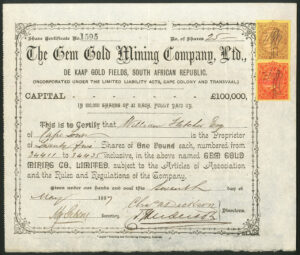 Share Certificate No. 1595 No. of Shares 25
The Gem Gold Mining Company, Ltd.,
DE KAAP GOLD FIELDS, SOUTH AFRICAN REPUBLIC.
(INCORPORATED UNDER THE LIMITED LIABILITY ACTS, CAPE COLONY AND TRANSVAAL)
CAPITAL £100,000,
IN 100,000 SHARES OF £1 EACH, FULLY PAID UP.
This is to Certify that William Fletcher Esq
Cape Town is the Proprietor
of Twenty five Shares of One Pound each, numbered from
34411 to 34435 inclusive, in the above named GEM GOLD
MINING CO. LIMITED, subject to the Articles of Association
and the Rules and Regulations of the Company.
Given under our hands and seal this Seventh day of
May 1887
Secretary. Directors.